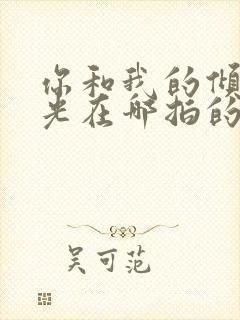 你和我的倾
光在哪拍的
吴可范